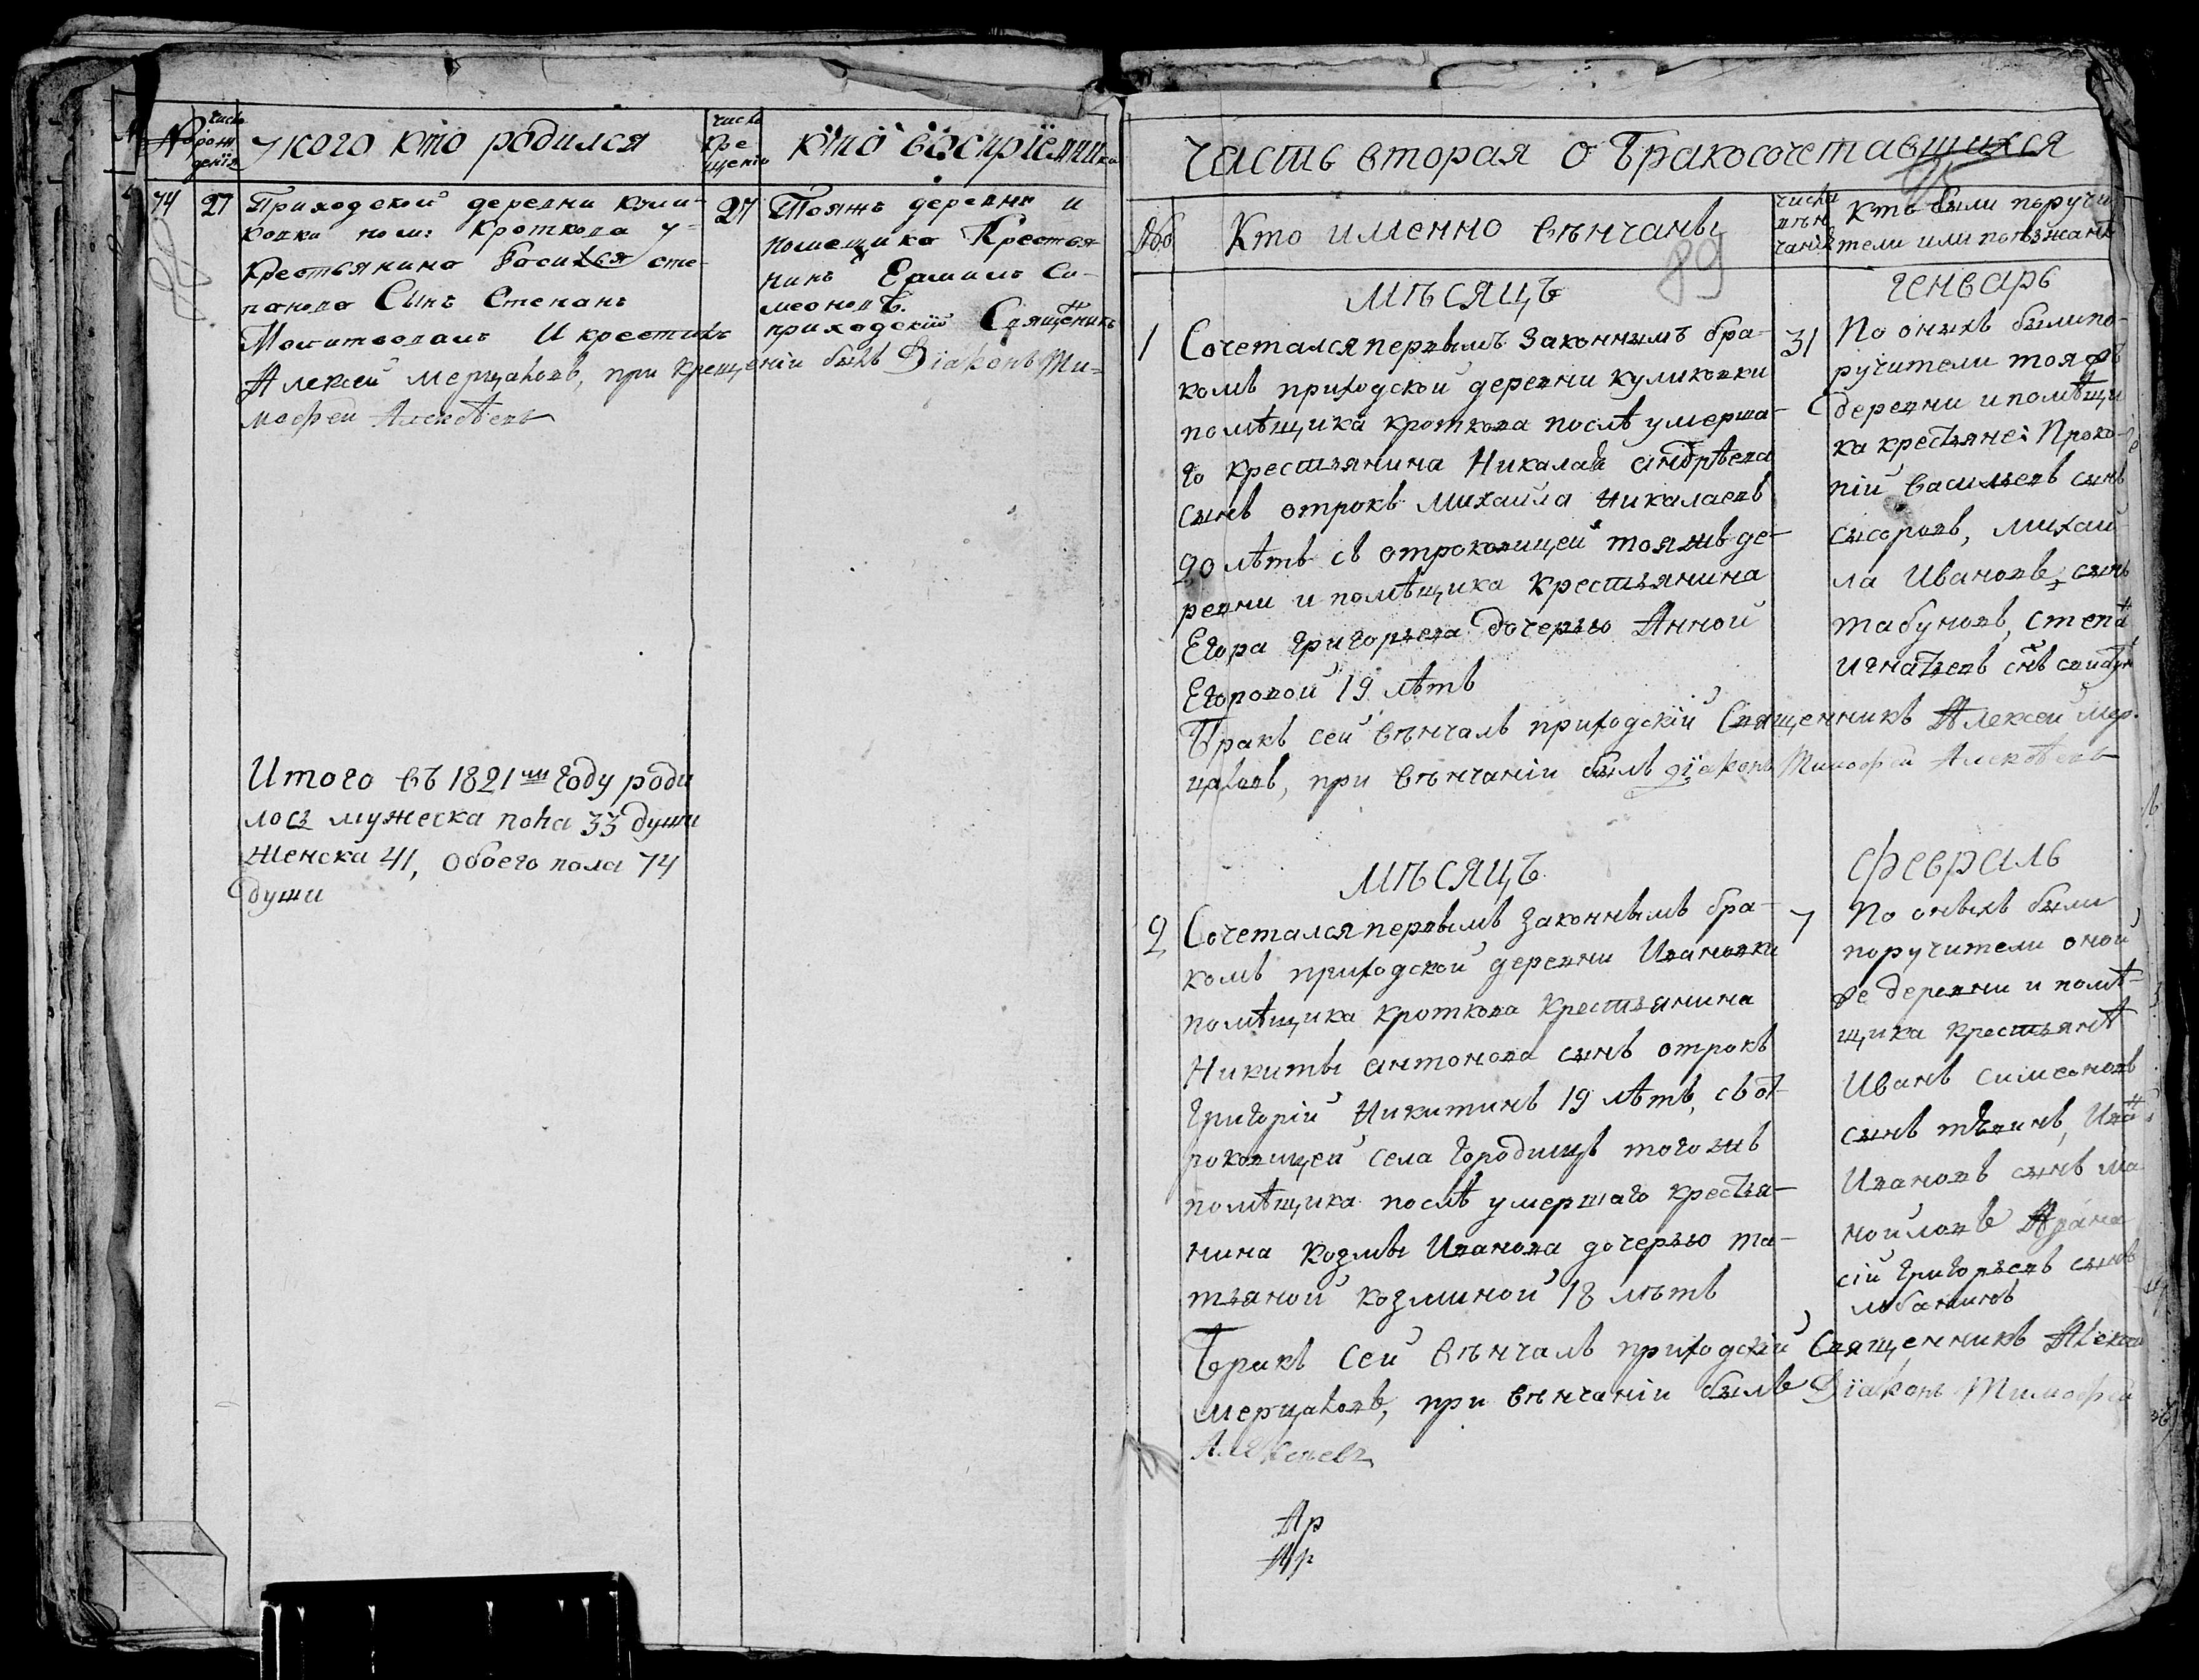 № числ рож денїя
у кого кто родился
число кре щенїя
кто воспрїемник
74
27
Приходской деревни Кули-
ковки пом: Кроткова у
Крестьянина Васил сте-
панова Сынъ Степанъ
27
Тояжъ деревни и
помещика Крестья
нинъ Си-
меоновъ.
Молитвовалъ И крестилъ приходскїй Священникъ
Алексей Мерцаловъ, при крещенїи былъ Дїаконъ Ти-
мофей Алексѣевъ
Итого въ 1821мъ году роди
лось мужеска пола 33 души
Женска 41, обоего пола 74
души
Часть вторая о Бракосочетавшихся
89
Кто именно венчаны
числа вѣн чанїя
Кто были поручи
тели или поѣзжанѣ
мѣсяцъ
генварь
1
Сочетался первымъ законнымъ бра-
комъ приходской деревни куликовки
помѣщика кроткова послѣ умерша-
го крестьянина Николая андрѣева
сынъ отрокъ Михайла Николаевъ
20 лѣтъ съ отроковицей тояжъ де-
ревни и помѣщика крестьянина
Егора григорьева дочерью Анной
Егоровой 19 лѣтъ
31
По оныхъ были по-
ручители тояжъ
деревни и помѣщи
ка крестьяне: Проко-
пїй васильевъ сынъ
Михай
ла Ивановъ сынъ
табуновъ, степа
игнатьевъ снъ
Бракъ сей вѣнчалъ приходскїй Священникъ Алексей Мер-
цаловъ, при вѣнчанїи былъ дїаконъ Тимофей Алексѣевъ
мѣсяцъ
февраль
2
Сочетался первымъ законнымъ бра-
комъ приходской деревни Ивановки
помѣщика кроткова крестьянина
Никиты антонова сынъ отрокъ
григорїй Никитинъ 19 лѣтъ, съ от
роковицей села городищъ тогожъ
помѣщика послѣ умершаго крестья-
нина козмы Иванова дочерью та-
тьяной козминой 18 лѣтъ
7
По оныхъ были
поручители оной
же деревни и помѣ-
щика крестьянѣ
Иванъ симеоновъ
сынъ Ива
Ивановъ сынъ ма
нойловъ Афана
сїй григорьевъ сынъ
Бракъ сей вѣнчалъ приходскїй Священникъ Алексей
мерцаловъ, при вѣнчанїи былъ Дїаконъ Тимофей
Алексеевъ
Ар
Ар